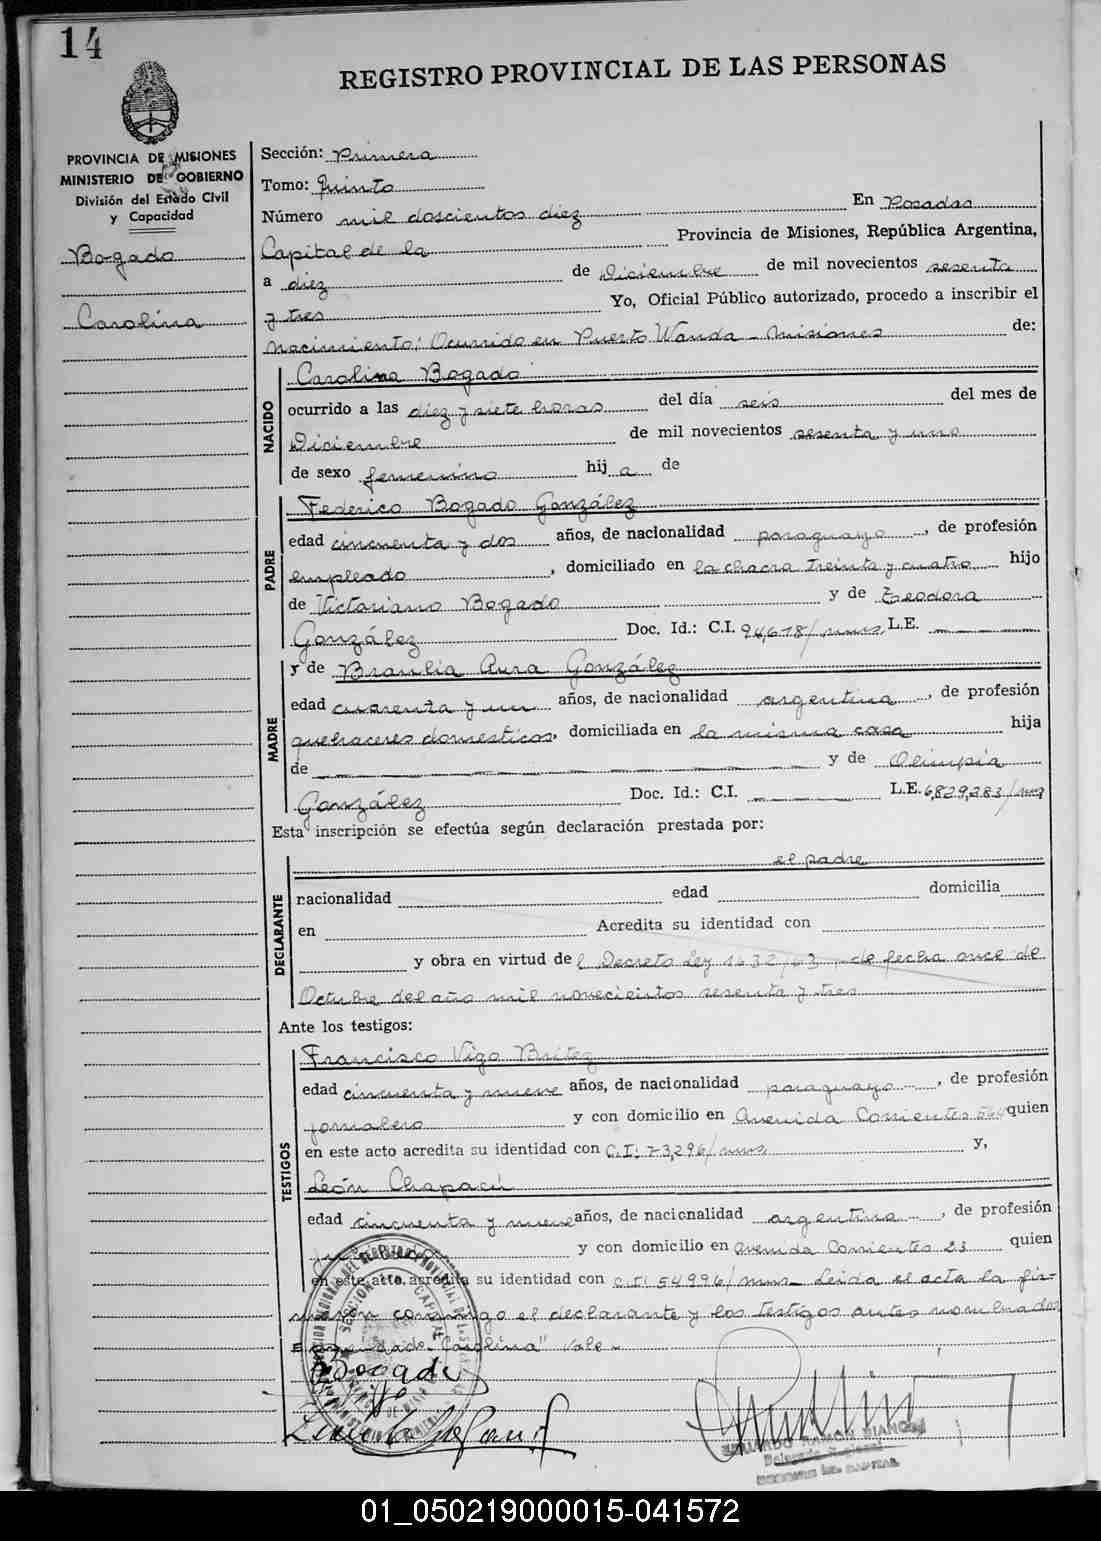 14
REGISTRO PROVINCIAL DE LAS PERSONAS
PROVINCIA DE MISIONES
MINISTERIO DE GOBIERNO
División del Estado Civil
y Capacidad
Bogado
Carolina
Sección: Primera
Tomo: Quinto
Número mil doscientos diez En Posadas
Capital de la Provincia de Misiones, República Argentina,
a diez de Diciembre de mil novecientos sesenta
y tres Yo, Oficial Público autorizado, procedo a inscribir el
Nacimiento: Ocurrido en Puerto Wanda - Misiones de:
NACIDO
Carolina Bogado
ocurrido a las diez y siete horas del día seis del mes de
Diciembre de mil novecientos sesenta y uno
de sexo femenino hij a de
PADRE
Federico Bogado González
edad cincuenta y dos años, de nacionalidad paraguayo, de profesión
empleado, domiciliado en la chacra treinta y cuatro hijo
de Victoriano Bogado y de Teodora
González Doc. Id.: C.I. 94,678/mnes. L.E.
MADRE
y de Braulia Aura González
edad cuarenta y un años, de nacionalidad argentina, de profesión
quehaceres domésticos, domiciliada en la misma casa hija
de y de Olimpia
González Doc. Id.: C.I. L.E. 6,829,283/mnes
Esta inscripción se efectúa según declaración prestada por:
DECLARANTE
el padre
nacionalidad edad domicilia
en Acredita su identidad con
y obra en virtud de l Decreto Ley 1632/63, de fecha once de
Octubre del año mil novecientos sesenta y tres
Ante los testigos:
TESTIGOS
Francisco Vigo Britez
edad cincuenta y nueve años, de nacionalidad paraguayo, de profesión
jornalero y con domicilio en Avenida Corrientes 564 quien
en este acto acredita su identidad con C.I. 73,296/mnes y,
León Chapacú
edad cincuenta y nueve años, de nacionalidad argentino, de profesión
y con domicilio en avenida Corrientes 23 quien
en este acto acredita su identidad con C.I. 54996/mnes - Leída el acta la fir-
marón conmigo el declarante y los testigos antes nombrados
Enmendado "Carolina" Vale -
Bogado
EDUARDO RAMON BIANCHI
01_050219000015-041572